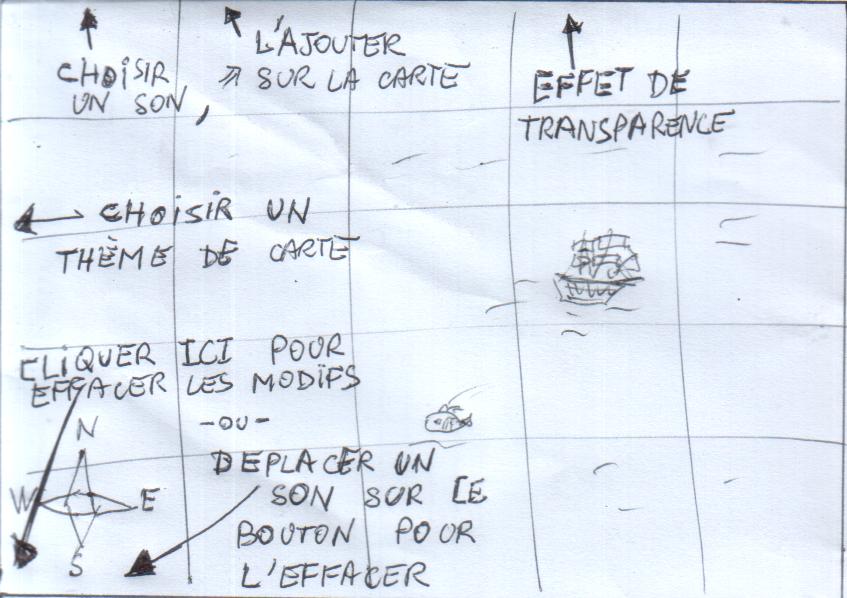 CHOISIR
UN SON,
L'AJOUTER
SUR LA CARTE
EFFET DE
TRANSPARENCE
CHOISIR UN
THÈME DE CARTE
CLIQUER ICI POUR
EFFACER LES MODIFS
-OU-
DEPLACER UN
SON SUR LE
BOUTON POUR
L'EFFACER
N
W E
S